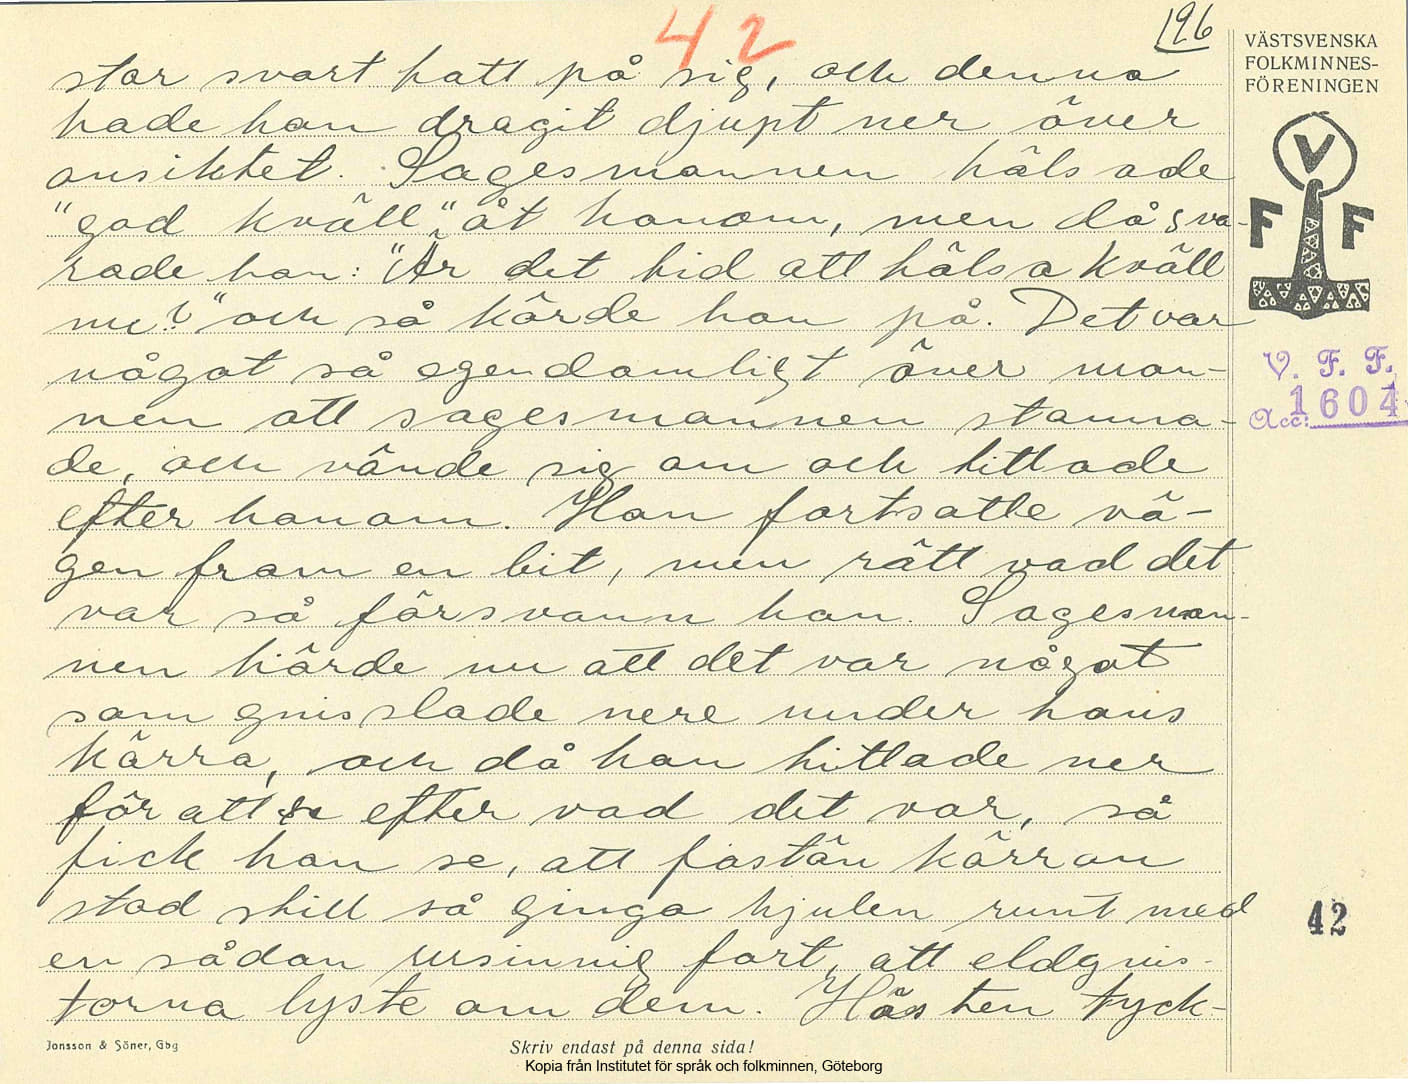 42
196
VÄSTSVENSKA
FOLKMINNES-
FÖRENINGEN
stor svart hatt på sig, och denna
hade han dragit djupt ner över
ansiktet. Sagesmannen hälsade
"god kväll" åt honom, men då sva-
rade han: "Är det tid att hälsa kväll
nu?" och så körde han på. Det var
något så egendomligt över man-
nen att sagesmannen stanna-
de, och vände sig om och tittade
efter honom. Han fortsatte vä-
gen fram en bit, men rätt vad det
var så försvann han. Sagesman-
nen hörde nu att det var något
som gnisslade nere under hans
kärra, och då han tittade ner
för att se efter vad det var, så
fick han se, att fastän kärran
stod still så ginga hjulen runt med
en sådan ursinnig fart, att eldgnis-
torna lyste om dem. Hästen tyck-
V
F F
V. F. F.
Acc: 1604
42
Jonsson & Söner, Gbg
Skriv endast på denna sida!
Kopia från Institutet för språk och folkminnen, Göteborg